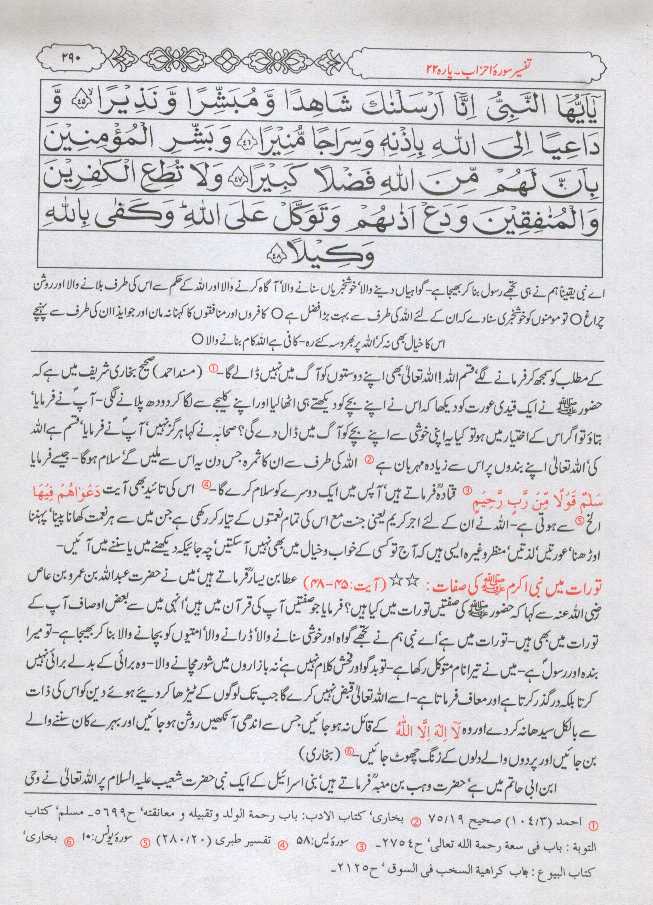 تفسیر سورۂ احزاب۔ پارہ ۲۲
۲۹۰
يٰٓاَيُّهَا النَّبِىُّ اِنَّآ اَرْسَلْنٰكَ شَاهِدًا وَّمُبَشِّرًا وَّنَذِيْرًا ﴿٤٥﴾ وَّ
دَاعِيًا اِلَى اللهِ بِاِذْنِهٖ وَسِرَاجًا مُّنِيْرًا ﴿٤٦﴾ وَبَشِّرِ الْمُؤْمِنِيْنَ
بِاَنَّ لَهُمْ مِّنَ اللهِ فَضْلًا كَبِيْرًا ﴿٤٧﴾ وَلَا تُطِعِ الْكٰفِرِيْنَ
وَالْمُنٰفِقِيْنَ وَدَعْ اَذٰىهُمْ وَتَوَكَّلْ عَلَى اللهِ ؕ وَكَفٰى بِاللهِ
وَكِيْلًا ﴿٤٨﴾
اے نبی یقیناً ہم نے ہی تجھے رسول بنا کر بھیجا ہے۔ گواہیاں دینے والا' خوشخبریاں سنانے والا' آگاہ کرنے والا اور اللہ کے حکم سے اس کی طرف بلانے والا اور روشن
چراغ ○ تو مومنوں کو خوشخبری سنا دے کہ ان کے لئے اللہ کی طرف سے بہت بڑا فضل ہے ○ کافروں اور منافقوں کا کہنا نہ مان اور جو ایذا ان کی طرف سے پہنچے
اس کا خیال بھی نہ کر' اللہ پر بھروسہ کئے رہ۔ کافی ہے اللہ کام بنانے والا ○
کے مطلب کو سمجھ کر فرمانے لگے' قسم اللہ! اللہ تعالیٰ بھی اپنے دوستوں کو آگ میں نہیں ڈالے گا۔ ① (مسند احمد) صحیح بخاری شریف میں ہے کہ
حضور ﷺ نے ایک قیدی عورت کو دیکھا کہ اس نے اپنے بچے کو دیکھتے ہی اٹھا لیا اور اپنے کلیجے سے لگا کر دودھ پلانے لگی۔ آپ نے فرمایا'
بتاؤ تو اگر اس کے اختیار میں ہو تو کیا یہ اپنی خوشی سے اپنے بچے کو آگ میں ڈال دے گی؟ صحابہ نے کہا ہرگز نہیں' آپ نے فرمایا' قسم ہے اللہ
کی' اللہ تعالیٰ اپنے بندوں پر اس سے زیادہ مہربان ہے ② اللہ کی طرف سے ان کا ثمرہ جس دن یہ اس سے ملیں گے' سلام ہوگا۔ جیسے فرمایا
سَلٰمٌ قَوْلًا مِّنْ رَّبٍّ رَّحِيْمٍ ③ قتادہؒ فرماتے ہیں' آپس میں ایک دوسرے کو سلام کرے گا۔ ④ اس کی تائید بھی آیت دَعْوٰاهُمْ فِيْهَا
الخ' ⑤ سے ہوتی ہے۔ اللہ نے ان کے لئے اجر کریم یعنی جنت مع اس کی تمام نعمتوں کے تیار کر رکھی ہے جن میں سے ہر نعمت کھانا پینا' پہننا
اوڑھنا' عورتیں' لذتیں' منظر وغیرہ ایسی ہیں کہ آج تو کسی کے خواب و خیال میں بھی نہیں آسکتیں' چہ جائیکہ دیکھنے میں یا سننے میں آئیں۔
تورات میں نبی اکرم ﷺ کی صفات : ☆☆ (آیت: ۴۵-۴۸) عطا بن یسارؒ فرماتے ہیں' میں نے حضرت عبداللہ بن عمرو بن عاص
رضی اللہ عنہ سے کہا کہ حضور ﷺ کی صفتیں تورات میں کیا ہیں؟ فرمایا جو صفتیں آپ کی قرآن میں ہیں' انہی میں سے بعض اوصاف آپ کے
تورات میں بھی ہیں۔ تورات میں ہے' اے نبی ہم نے تجھے گواہ اور خوشی سنانے والا' ڈرانے والا' امتیوں کو بچانے والا بنا کر بھیجا ہے۔ تو میرا
بندہ اور رسول ہے۔ میں نے تیرا نام متوکل رکھا ہے۔ تو بدگو اور فحش کلام نہیں ہے' نہ بازاروں میں شور مچانے والا۔ وہ برائی کے بدلے برائی نہیں
کرتا بلکہ درگذر کرتا ہے اور معاف فرماتا ہے۔ اسے اللہ تعالیٰ قبض نہیں کرے گا جب تک لوگوں کے ٹیڑھا کر دیئے ہوئے دین کو اس کی ذات
سے بالکل سیدھا نہ کر دے اور وہ لَآ اِلٰهَ اِلَّا اللهُ کے قائل نہ ہو جائیں جس سے اندھی آنکھیں روشن ہو جائیں اور بہرے کان سننے والے
بن جائیں اور پردوں والے دلوں کے زنگ چھوٹ جائیں۔ ⑥ (بخاری)
ابن ابی حاتم میں ہے' حضرت وہب بن منبہؒ فرماتے ہیں' بنی اسرائیل کے ایک نبی حضرت شعیب علیہ السلام پر اللہ تعالیٰ نے وحی
① احمد (۱۰۴/۳) صحیح ۷۵/۱۹ ② بخاری' کتاب الادب: باب رحمة الولد وتقبيله و معانقته' ح۵۶۹۹۔ مسلم' کتاب
التوبة : باب فی سعة رحمة الله تعالى' ح۲۷۵۴۔ ③ سورۂ یٰس: ۵۸ ④ تفسیر طبری (۲۸۰/۲۰) ⑤ سورۂ یونس: ۱۰ ⑥ بخاری'
کتاب البیوع : باب کراھیة السخب فی السوق' ح۲۱۲۵۔